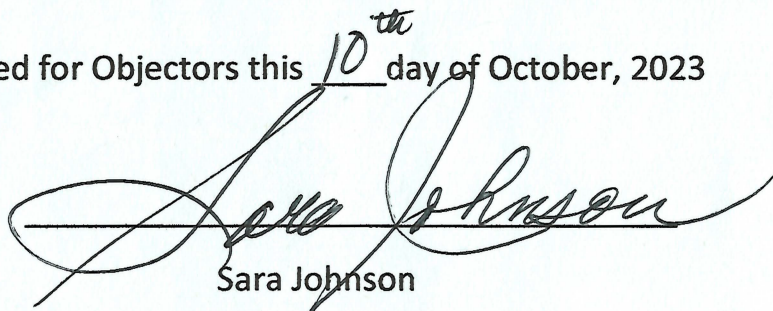 ed for Objectors this 10th day of October, 2023
Sara Johnson
Sara Johnson